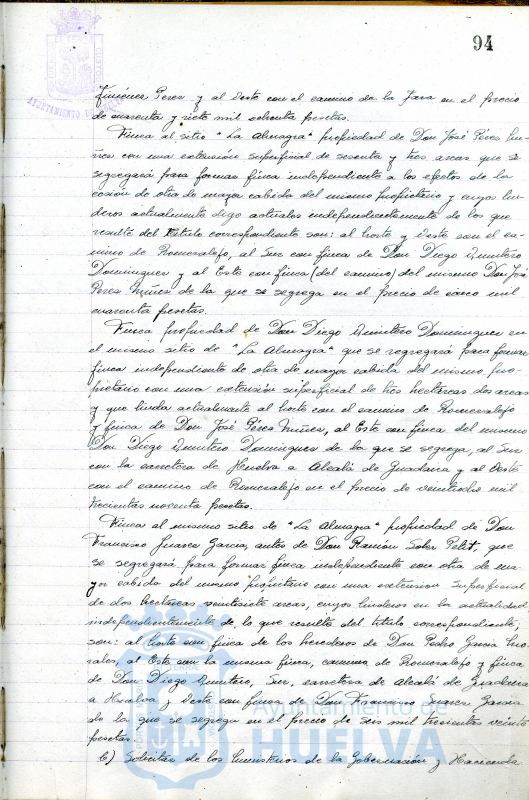 94
AYUNTAMIENTO
Jiménez Perez y al Oeste con el camino de la Jara en el precio
de cuarenta y siete mil ochenta pesetas.
Finca al sitio "La Almagra" propiedad de Don José Pérez Nu-
ñez con una extensión superficial de sesenta y tres areas que se
segregará para formar finca independiente a los efectos de la
cesión de otra de mayor cabida del mismo propietario y cuyos lin-
deros actualmente digo actuales independientemente de los que
resulte del titulo correspondiente son: al Norte y Oeste con el ca-
mino de Romeralejo, al Sur con finca de Don Diego Quintero
Dominguez y al Este con finca (del camino) del mismo Don José
Perez Nuñez de la que se segrega en el precio de cinco mil
cuarenta pesetas.
Finca propiedad de Don Diego Quintero Dominguez en
el mismo sitio de "La Almagra" que se segregará para formar
finca independiente de otra de mayor cabida del mismo pro-
pietario con una extensión superficial de tres hectareas dos areas
y que linda actualmente al Norte con el camino de Romeralejo
y finca de Don José Pérez Nuñez, al Este con finca del mismo
Don Diego Quintero Dominguez de la que se segrega, al Sur
con la carretera de Huelva a Alcalá de Guadaira y al Oeste
con el camino de Romeralejo en el precio de veintidos mil
trecientas noventa pesetas.
Finca al mismo sitio de "La Almagra" propiedad de Don
Francisco Juarez Garcia, antes de Don Ramón Soler Petit, que
se segregará para formar finca independiente con otra de ma-
yor cabida del mismo propietario con una extension superficial
de dos hectareas veintisiete areas, cuyos linderos en la actualidad
independientemente de lo que resulte del titulo correspondiente;
son: al Norte con finca de los herederos de Don Pedro Garcia Mo-
rales, al Este con la misma finca, camino de Romeralejo y finca
de Don Diego Quintero, Sur, carretera de Alcalá de Guadaira
a Huelva y Oeste con finca de Don Francisco Juarez Garcia
de la que se segrega en el precio de seis mil trecientas veinte
pesetas.
b) Solicitar de los Ministerios de la Gobernación y Hacienda
Ayuntamiento de
HUELVA